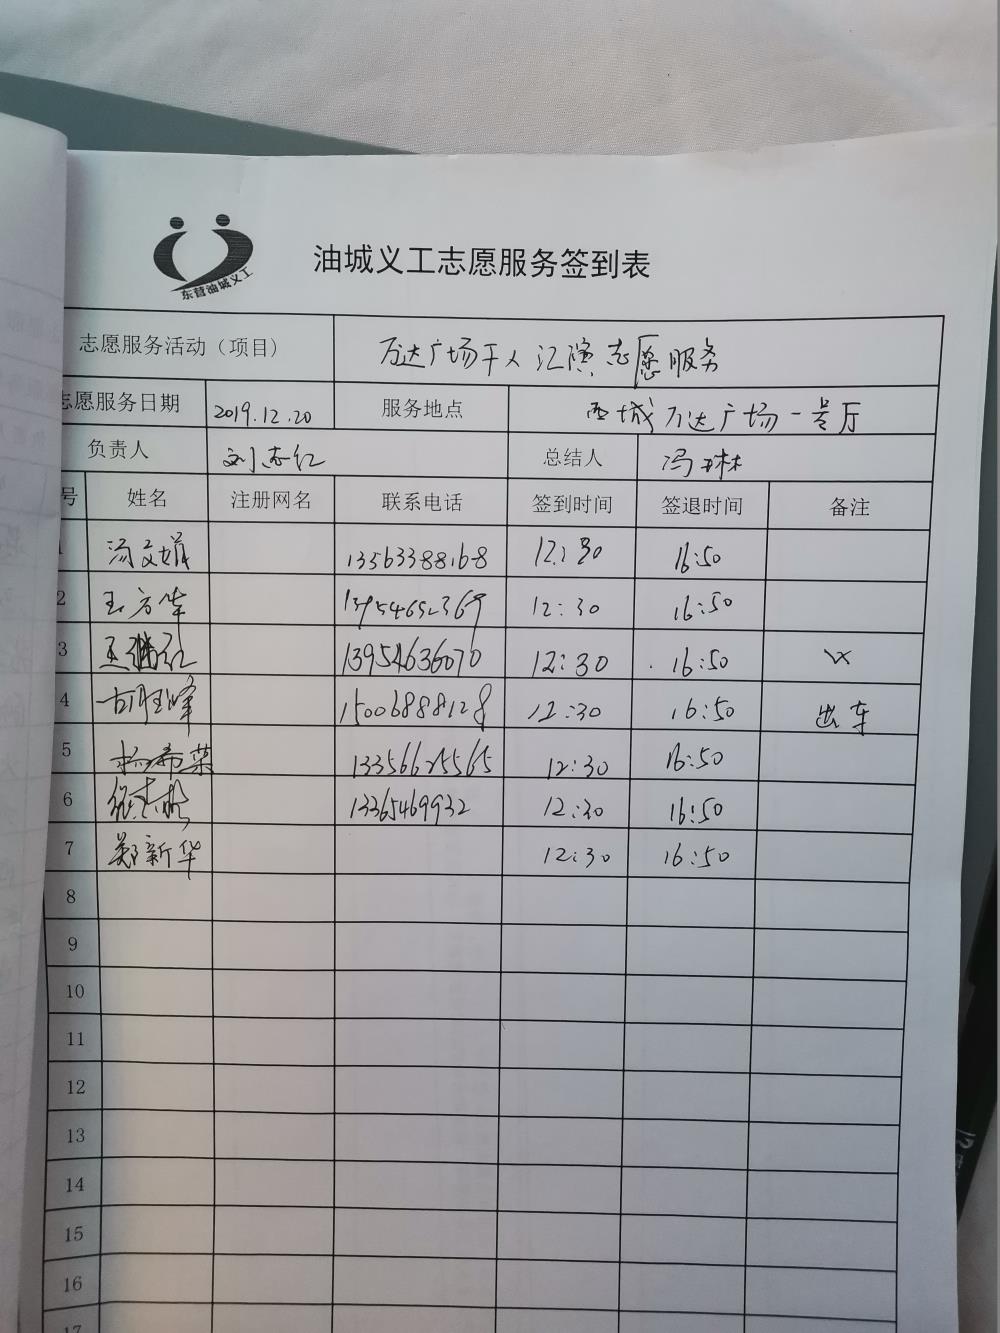 东营油城义工
油城义工志愿服务签到表
志愿服务活动（项目） 万达广场千人汇演志愿服务
志愿服务日期 2019.12.20 服务地点 西城万达广场一号厅
负责人 刘志红 总结人 冯
号 姓名 注册网名 联系电话 签到时间 签退时间 备注
1 汤文娟 13563388168 12:30 16:50
2 王方华 12:30 16:50
3 王继红 13954636070 12:30 16:50
4 胡旺峰 15006888128 12:30 16:50 出车
5 杨希荣 13356625565 12:30 16:50
6 张志彬 13365469932 12:30 16:50
7 郑新华 12:30 16:50
8
9
10
11
12
13
14
15
16
17